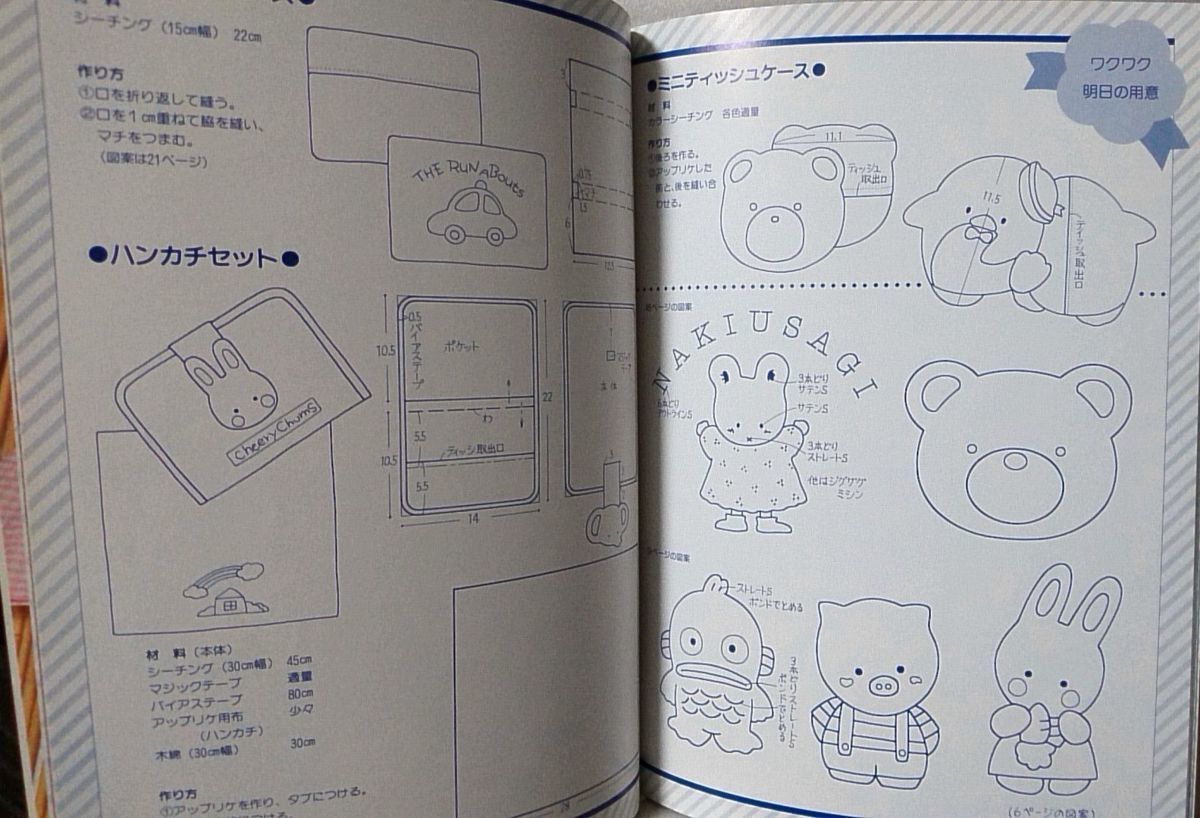 材 料
シーチング（15cm幅） 22cm
作り方
①口を折り返して縫う。
②口を1cm重ねて脇を縫い、
マチをつまむ。
（図案は21ページ）
THE RUNABOUTS
3
0.75
1.5
6
12.5
●ハンカチセット●
Cheery Chums
0.5
バイアステープ
ポケット
10.5
わ
22
5.5
ティッシュ取出口
10.5
5.5
14
1
本体
3
材 料（本体）
シーチング（30cm幅） 45cm
マジックテープ 適量
バイアステープ 80cm
アップリケ用布 少々
（ハンカチ）
木綿（30cm幅） 30cm
作り方
①アップリケを作り、タブにつける。
ワクワク
明日の用意
●ミニティッシュケース●
材 料
カラーシーチング 各色適量
作り方
①後ろを作る。
②アップリケした
前と、後を縫い合
わせる。
11.1
ティッシュ
取出口
11.5
ティッシュ取出口
ページの図案
NAKIUSAGI
3本どり
サテンS
6本どり
アウトラインS
サテンS
3本どり
ストレートS
他はジグザグ
ミシン
ページの図案
ストレートS
ボンドでとめる
3本どりストレートS
ボンドでとめる
（6ページの図案）